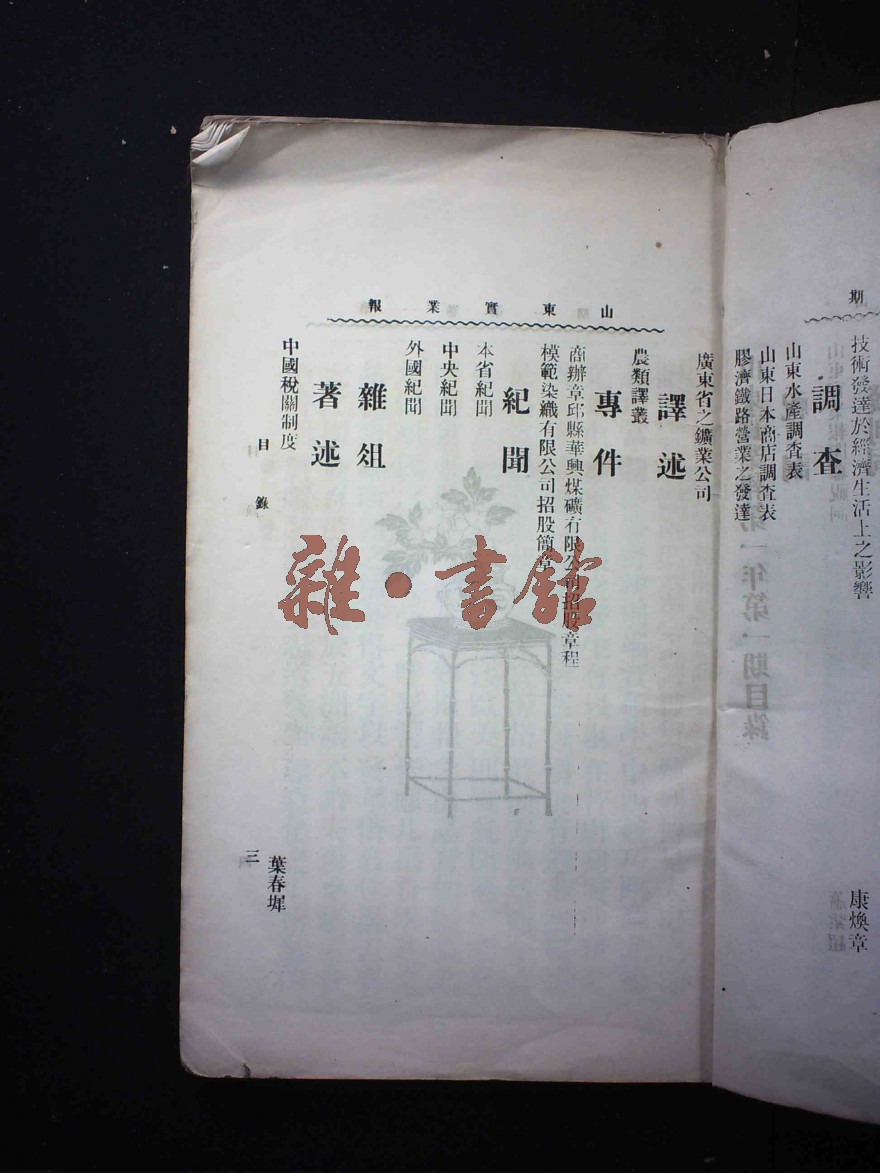 期
技術發達於經濟生活上之影響
康煥章
調查
山東水產調查表
山東日本商店調查表
膠濟鐵路營業之發達
山東實業報
廣東省之鑛業公司
譯述
農類譯叢
專件
商辦章邱縣華興煤礦有限公司招股章程
模範染織有限公司招股簡章
紀聞
本省紀聞
中央紀聞
外國紀聞
雜俎
著述
中國稅關制度
葉春墀
目錄
三
雜·書館
第一年第一期目錄